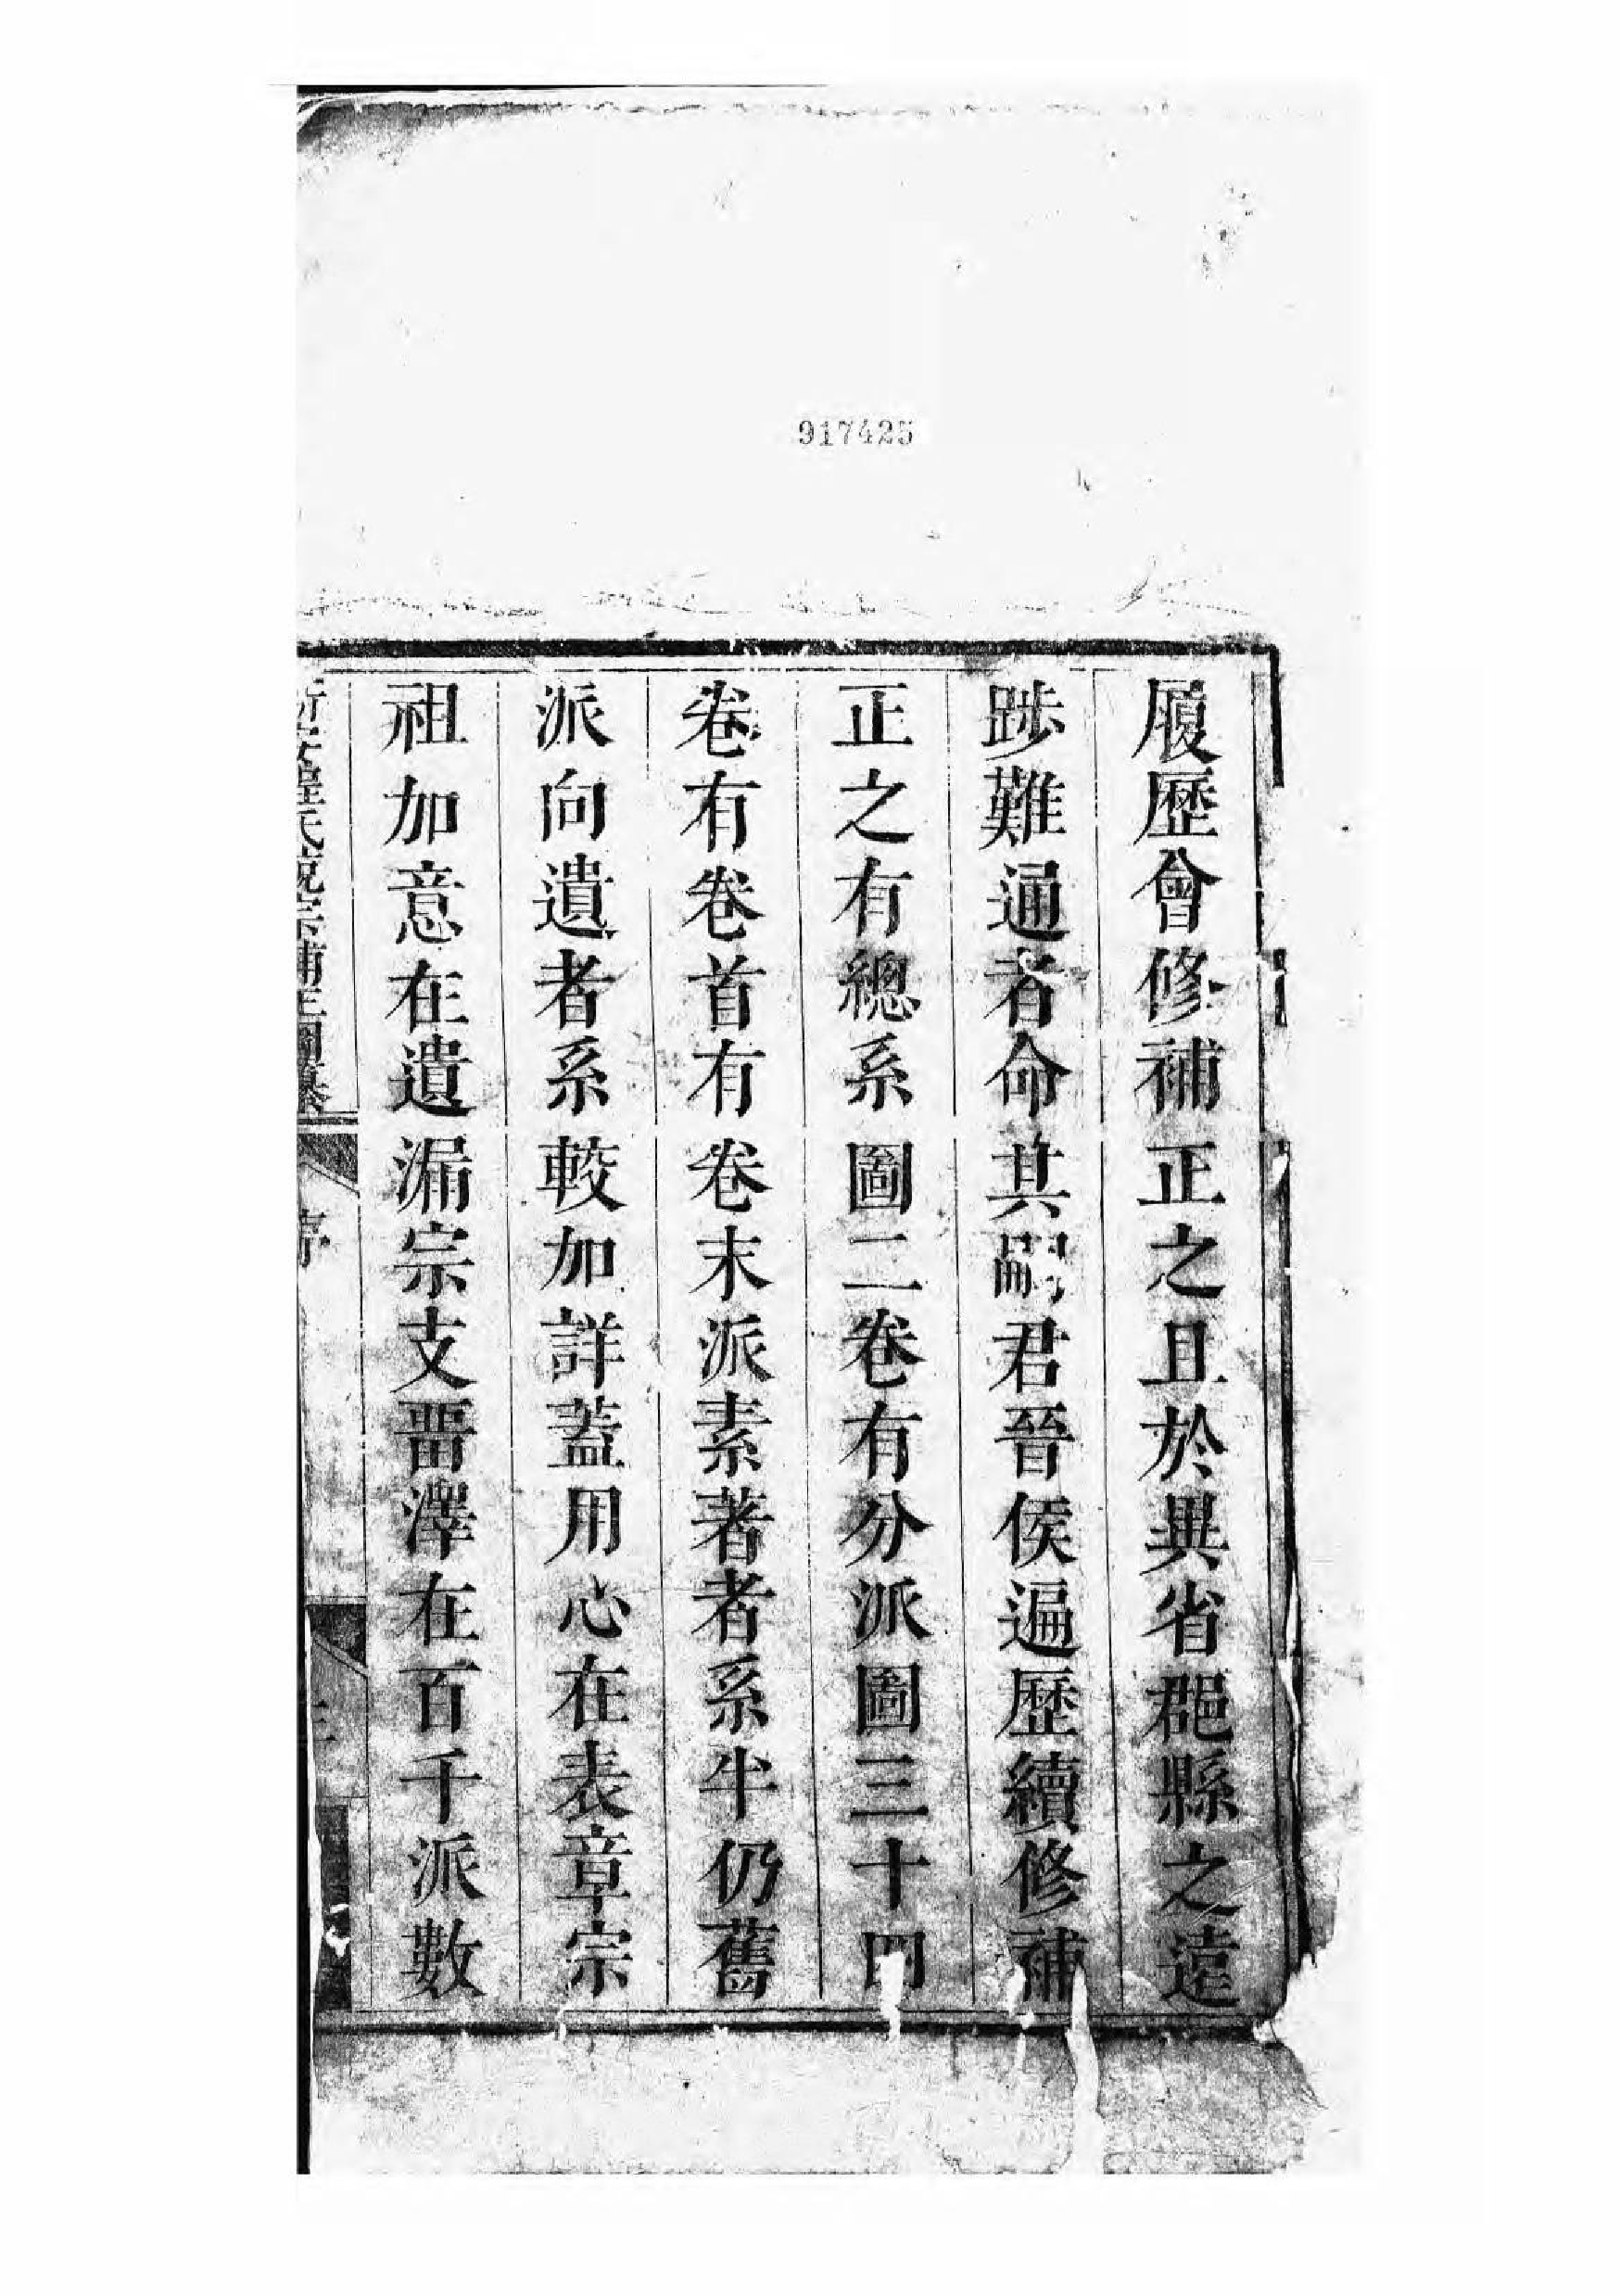 917425
履歷會修補正之且於異省郡縣之遠
踄難通者命其嗣君晉侯遍歷續修補
正之有總系圖二卷有分派圖三十四
卷有卷首有卷末派素著者系半仍舊
派向遺者系較加詳蓋用心在表章宗
祖加意在遺漏宗支畱澤在百千派數
新安程氏統宗補正圖纂
序